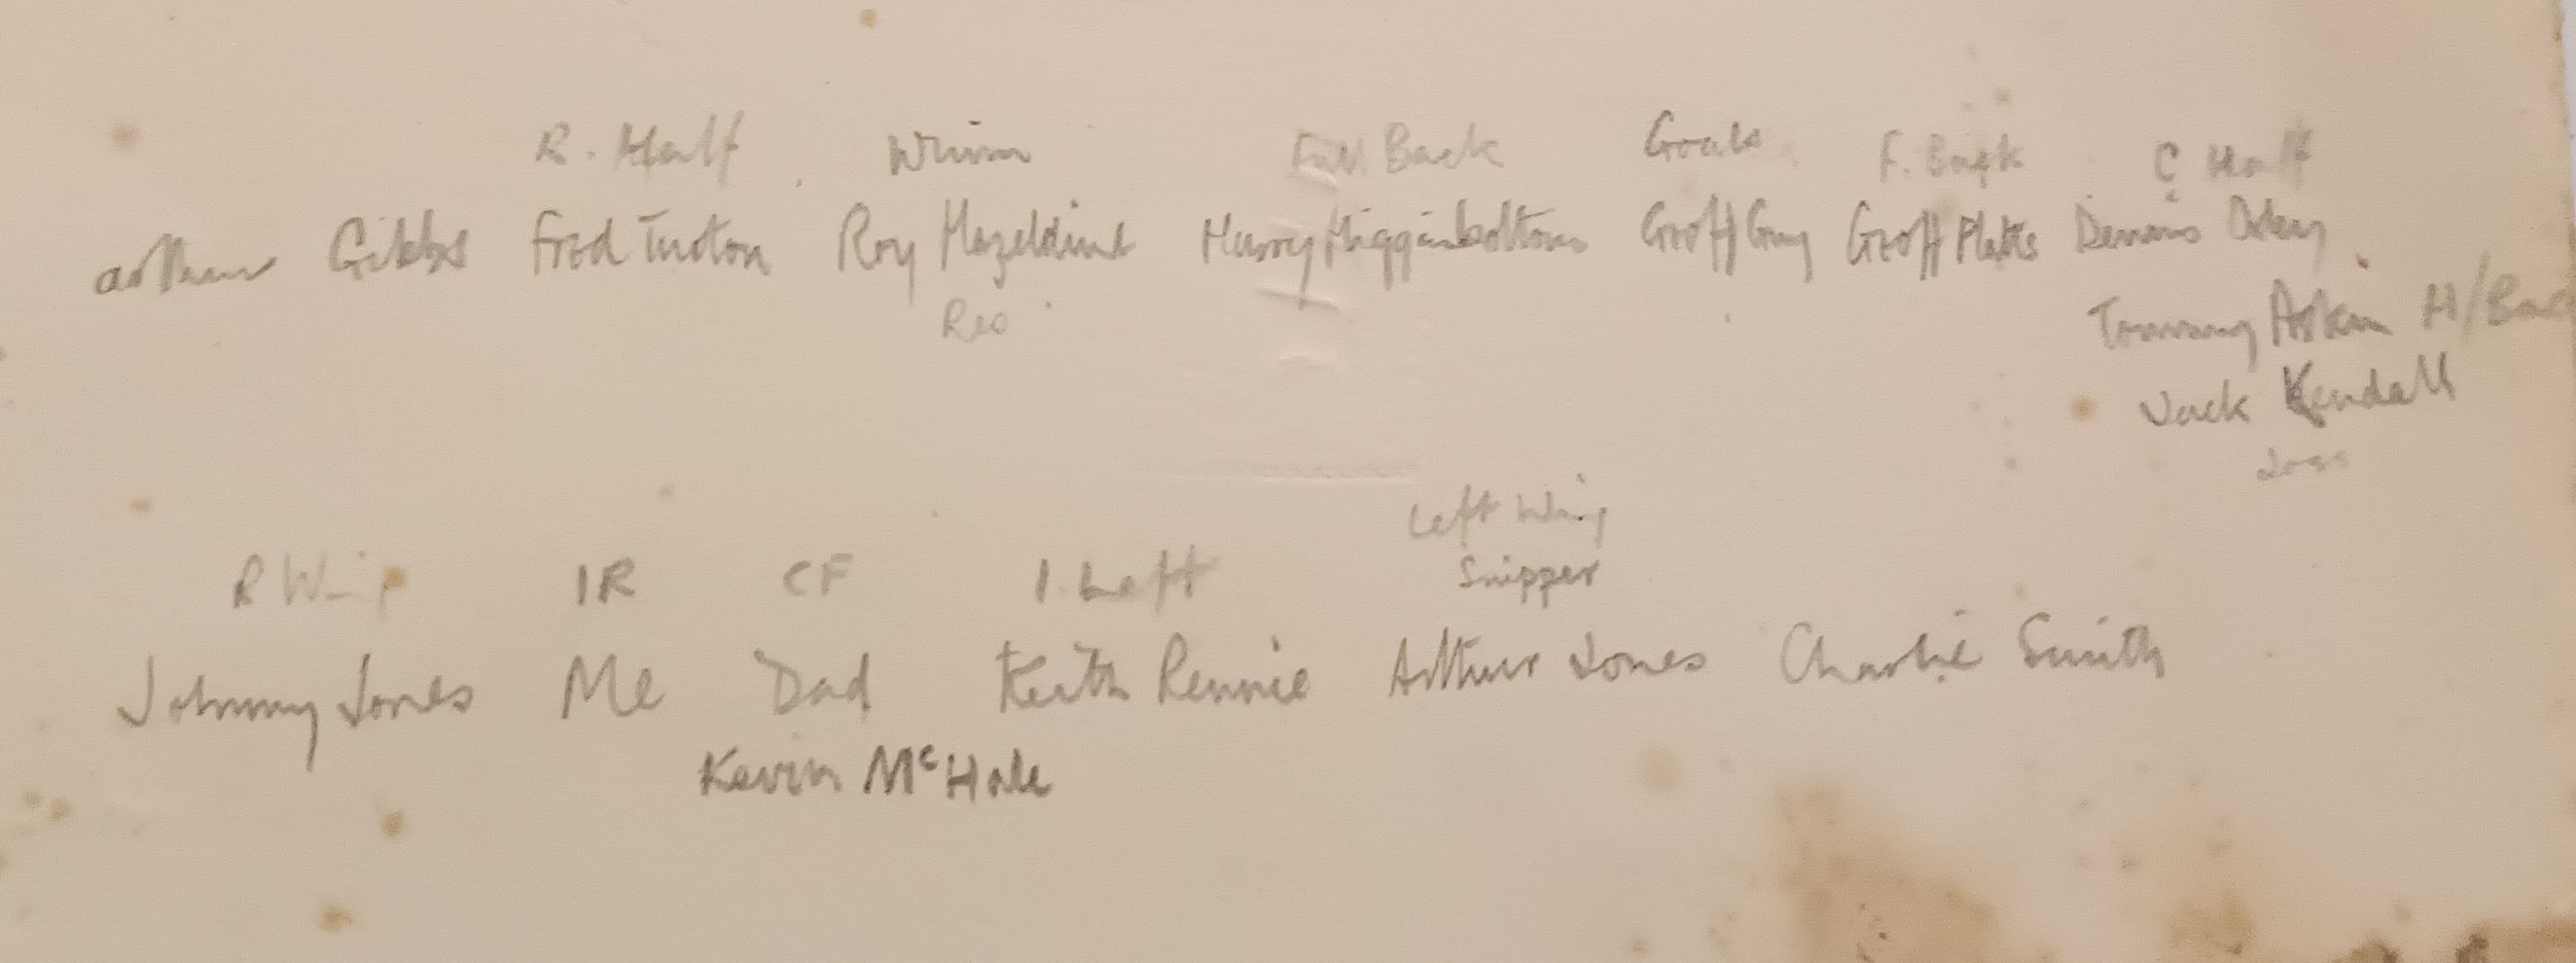 R. Half Full Back Goals F. Back C Half
Arthur Gibbs Fred Turton Roy Hazeldine Harry Higginbottom Geoff Guy Geoff Platts Dennis
Res
Tommy Askin H/Back
Jack Kendall
Left Wing
R Wing IR CF I. Left Snipper
Johnny Jones Me Dad Keith Rennie Arthur Jones Charlie Smith
Kevin McHale